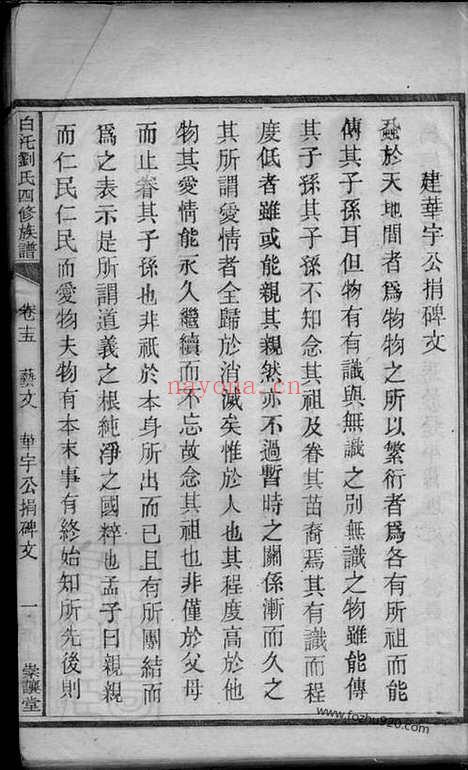 建華宇公捐碑文
蝨於天地間者爲物物之所以繁衍者爲各有所祖而能
傳其子孫耳但物有有識與無識之別無識之物雖能傳
其子孫其子孫不知念其祖及眷其苗裔焉其有識而程
度低者雖或能親其親然亦不過暫時之關係漸而久之
其所謂愛情者全歸於消滅矣惟於人也其程度高於他
物其愛情能永久繼續而不忘故念其祖也非僅於父母
而止眷其子孫也非祇於本身所出而已且有所團結而
爲之表示是所謂道義之根純淨之國粹也孟子曰親親
而仁民仁民而愛物夫物有本末事有終始知所先後則
白沱劉氏四修族譜
卷十五 藝文 華宇公捐碑文 一 崇讓堂
nayona.cn
www.fozhu920.com